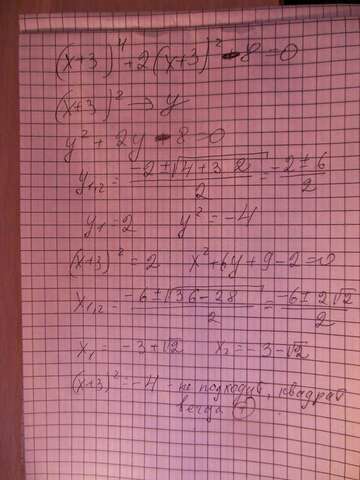 (x+3)⁴+2(x+3)²-8=0
(x+3)²→y
y²+2y-8=0
y₁,₂=(-2±√(4+32))/2=(-2±6)/2
y₁=2 y²=-4
(x+3)²=2 x²+6y+9-2=0
x₁,₂=(-6±√(36-28))/2=(-6±2√2)/2
x₁=-3+√2 x₂=-3-√2
(x+3)²=-4 - не подходит, квадрат
всегда ⊕